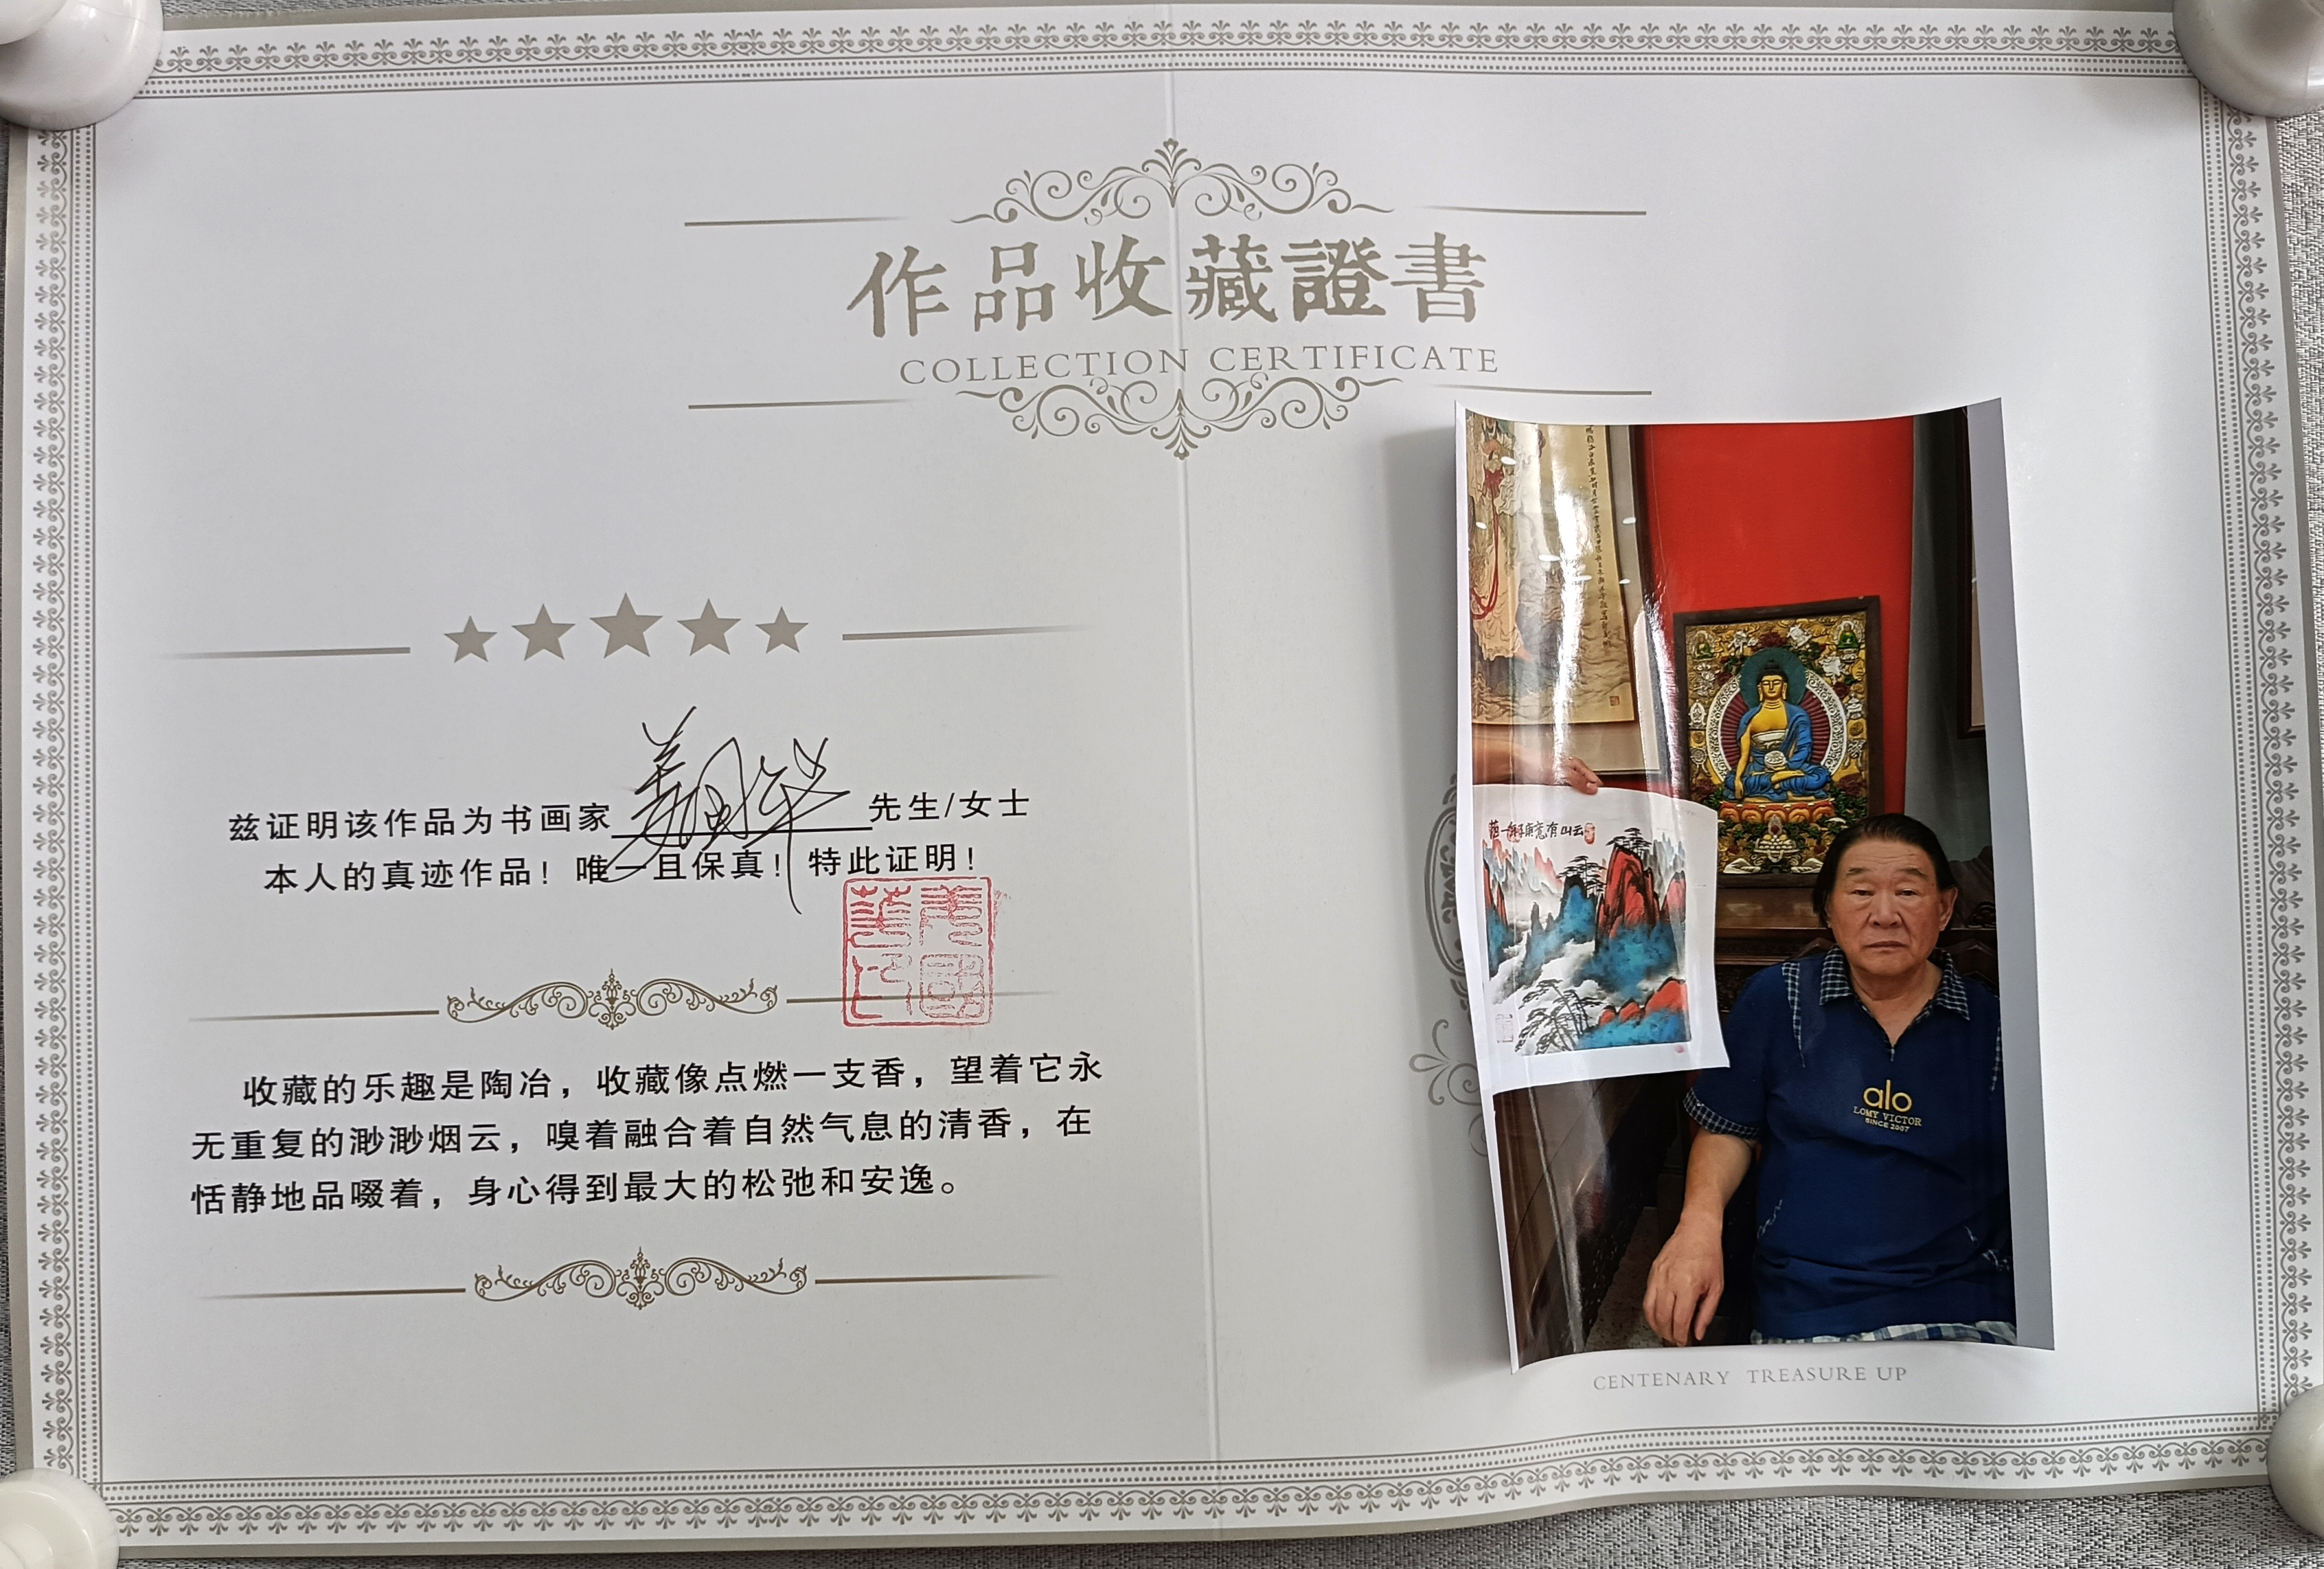 作品收藏證書
COLLECTION CERTIFICATE
兹证明该作品为书画家 姜国华 先生/女士
本人的真迹作品！唯一且保真！特此证明！
姜国华印
收藏的乐趣是陶冶，收藏像点燃一支香，望着它永
无重复的渺渺烟云，嗅着融合着自然气息的清香，在
恬静地品啜着，身心得到最大的松弛和安逸。
alo
LOMY VICTOR
SINCE 2007
CENTENARY TREASURE UP